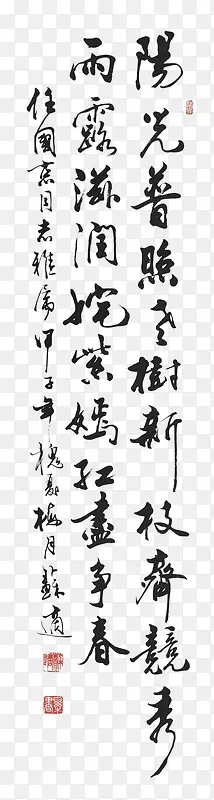 陽光普照老樹新枝齊競秀
雨露滋潤姹紫嫣紅盡争春
任國憲同志雅屬甲子年槐夏梅月蘇適